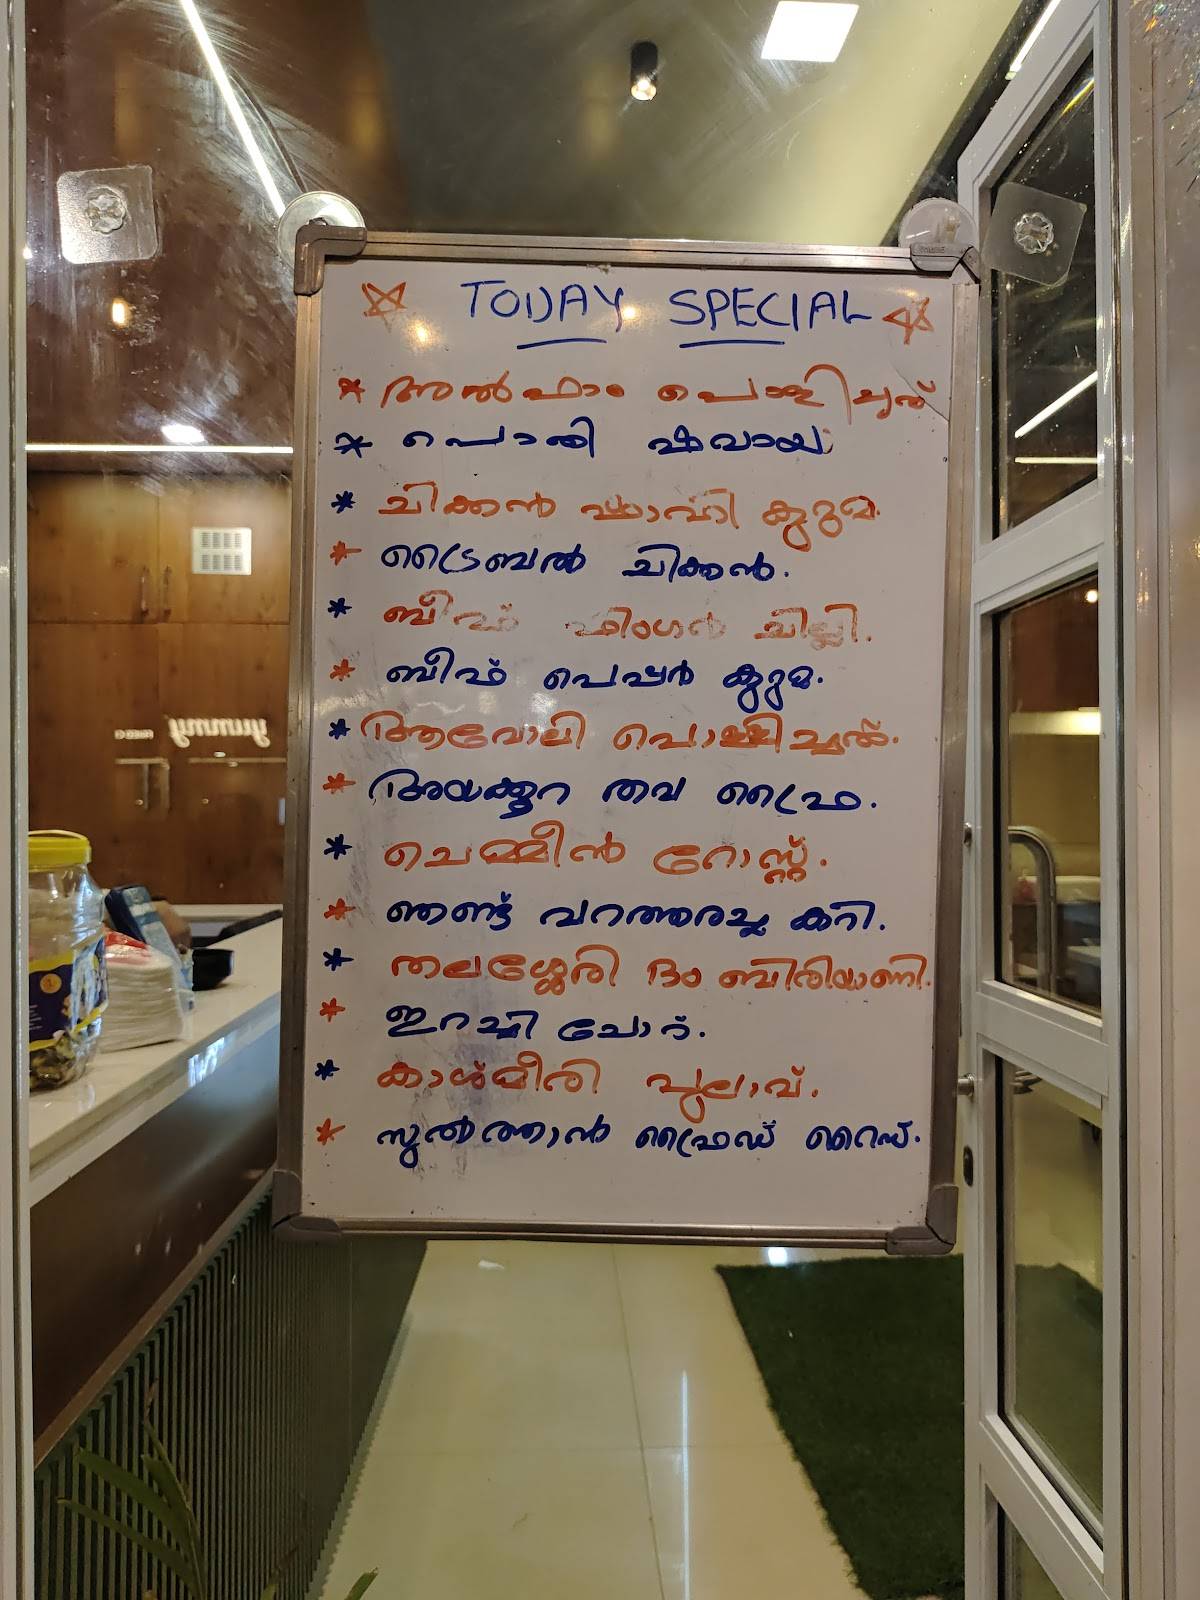 TODAY SPECIAL
അൽഫാം പൊള്ളിച്ചത്
പെരി ഷവായ
ചിക്കൻ ഷാഹി കുറുമ.
ട്രൈബൽ ചിക്കൻ.
ബീഫ് ഫിംഗർ ചില്ലി.
ബീഫ് പെപ്പർ കുറുമ.
ആവോലി പൊള്ളിച്ചത്.
അയക്കൂറ തവ ഫ്രൈ.
ചെമ്മീൻ റോസ്റ്റ്.
ഞണ്ട് വറത്തരച്ച കറി.
തലശ്ശേരി ദം ബിരിയാണി.
ഇറച്ചി ചോറ്.
കാശ്മീരി പുലാവ്.
സുൽത്താൻ ഫ്രൈഡ് റൈസ്.
yummy